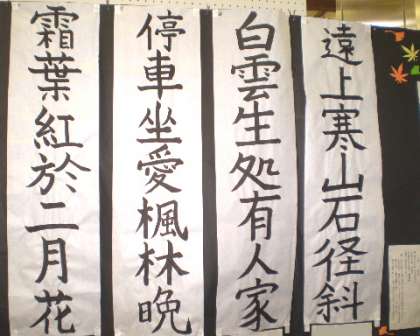 遠上寒山石径斜
白雲生処有人家
停車坐愛楓林晩
霜葉紅於二月花